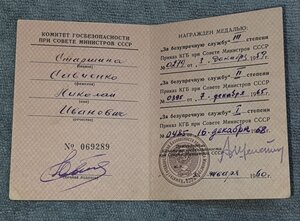 КОМИТЕТ ГОСБЕЗОПАСНОСТИ
ПРИ СОВЕТЕ МИНИСТРОВ СССР
Старшина
Савченко
(фамилия)
Николай
(имя)
Иванович
(отчество)
№ 069289
НАГРАЖДЕН МЕДАЛЬЮ:
„За безупречную службу" III степени
Приказ КГБ при Совете Министров СССР
„За безупречную службу" II степени
Приказ КГБ при Совете Министров СССР
7 декабря
„За безупречную службу" I степени
Приказ КГБ при Совете Министров СССР
№ 0485 16 декабря 68.